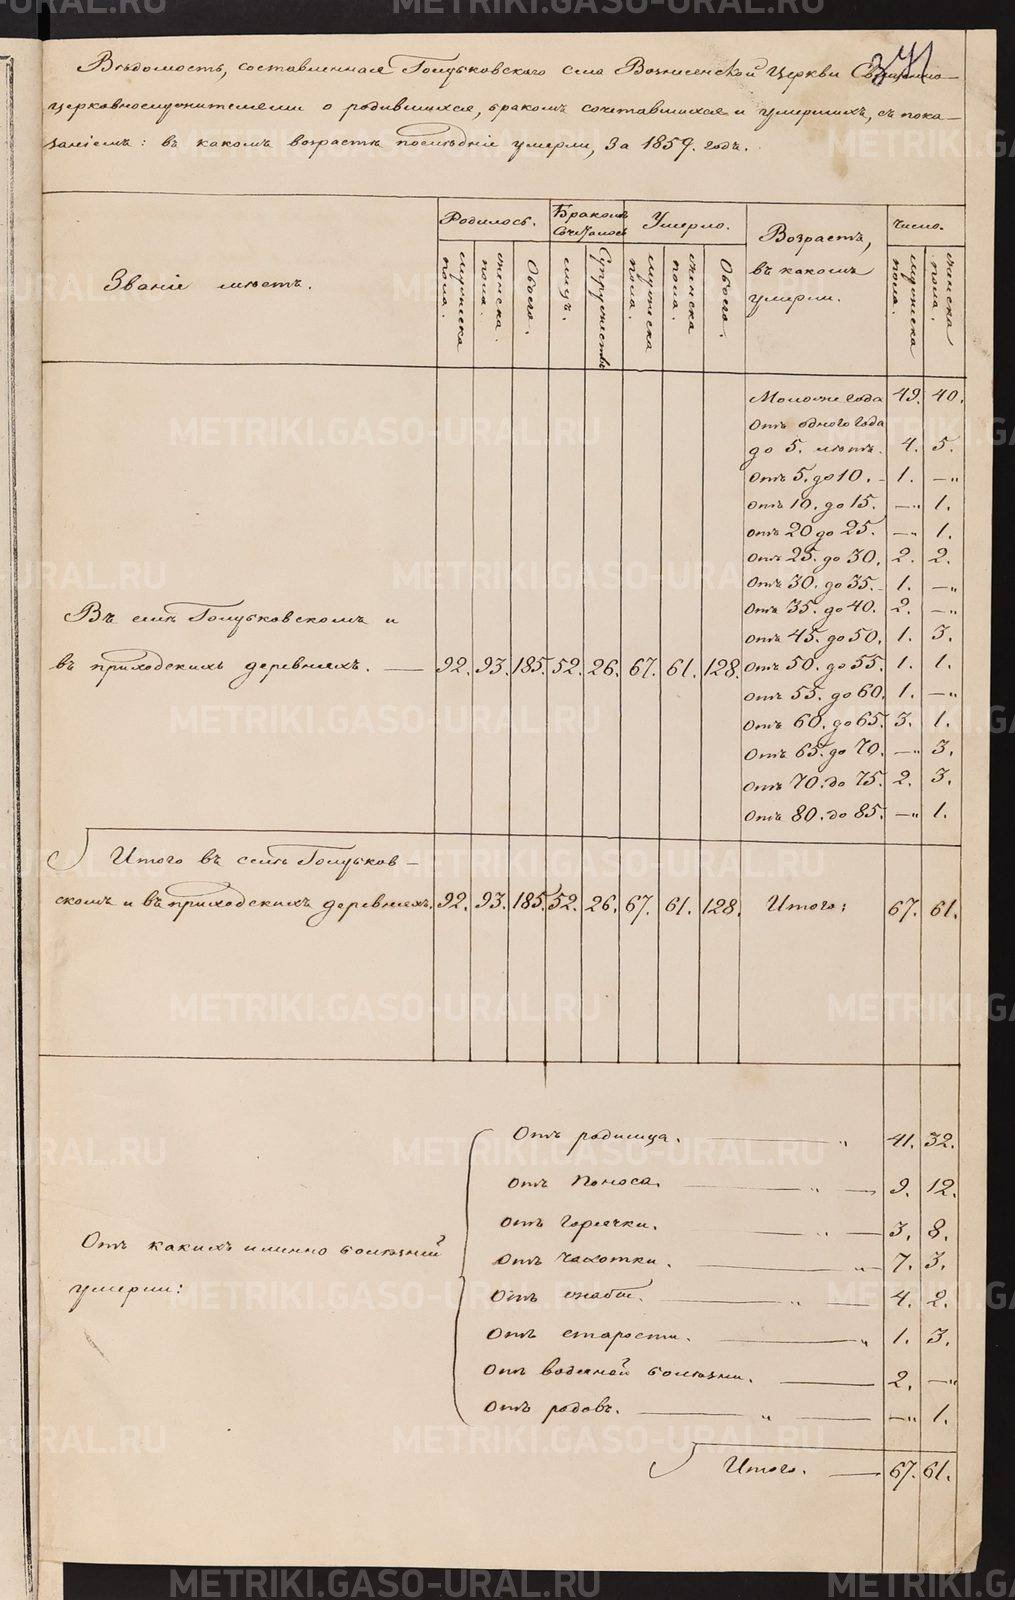 341
Вѣдомость, составленная Голубковскаго села Вознесенской Церкви Священно-
церковнослужителями о родившихся, бракомъ сочетавшихся и умершихъ, съ пока-
заніемъ: въ какомъ возрастѣ послѣдніе умерли, За 1859. годъ.
Званіе мѣстъ.
Родилось.
Бракомъ Сочеталось
Умерло.
Возрастъ, въ какомъ умерли.
Число.
мужеска пола.
женска пола.
Обоего.
муж.
Супружествъ
мужеска пола.
женска пола.
Обоего.
мужеска пола.
женска пола.
Моложе года 49. 40.
Отъ одного года
до 5. лѣтъ. 4. 5.
Отъ 5. до 10. 1. —„
Отъ 10. до 15. —„ 1.
Отъ 20 до 25. —„ 1.
Отъ 25. до 30. 2. 2.
Отъ 30. до 35. 1. —„
Отъ 35. до 40. 2. —„
Отъ 45. до 50. 1. 3.
Въ селѣ Голубковскомъ и
въ приходскихъ деревняхъ. — 92. 93. 185. 52. 26. 67. 61. 128. Отъ 50. до 55. 1. 1.
Отъ 55. до 60. 1. —„
Отъ 60. до 65. 3. 1.
Отъ 65. до 70. —„ 3.
Отъ 70. до 75. 2. 3.
Отъ 80. до 85. —„ 1.
Итого въ селѣ Голубков-
скомъ и въ приходскихъ деревняхъ. 92. 93. 185. 52. 26. 67. 61. 128. Итого: 67. 61.
Отъ какихъ именно болѣзней
умерли:
Отъ родимца. — „ 41. 32.
Отъ поноса. — „ — 9. 12.
Отъ горячки. — „ — 3. 8.
Отъ чахотки. — „ 7. 3.
Отъ ознобы. — „ — 4. 2.
Отъ старости. — „ 1. 3.
Отъ водяной болѣзни. — 2. —„
Отъ родовъ. — „ — —„ 1.
Итого. — 67. 61.
METRIKI.GASO-URAL.RU